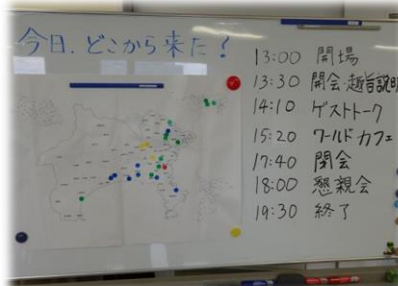 今日、どこから来た?
13:00 開場
13:30 開会・趣旨説明
14:10 ゲストトーク
15:20 ワールドカフェ
17:40 閉会
18:00 懇親会
19:30 終了